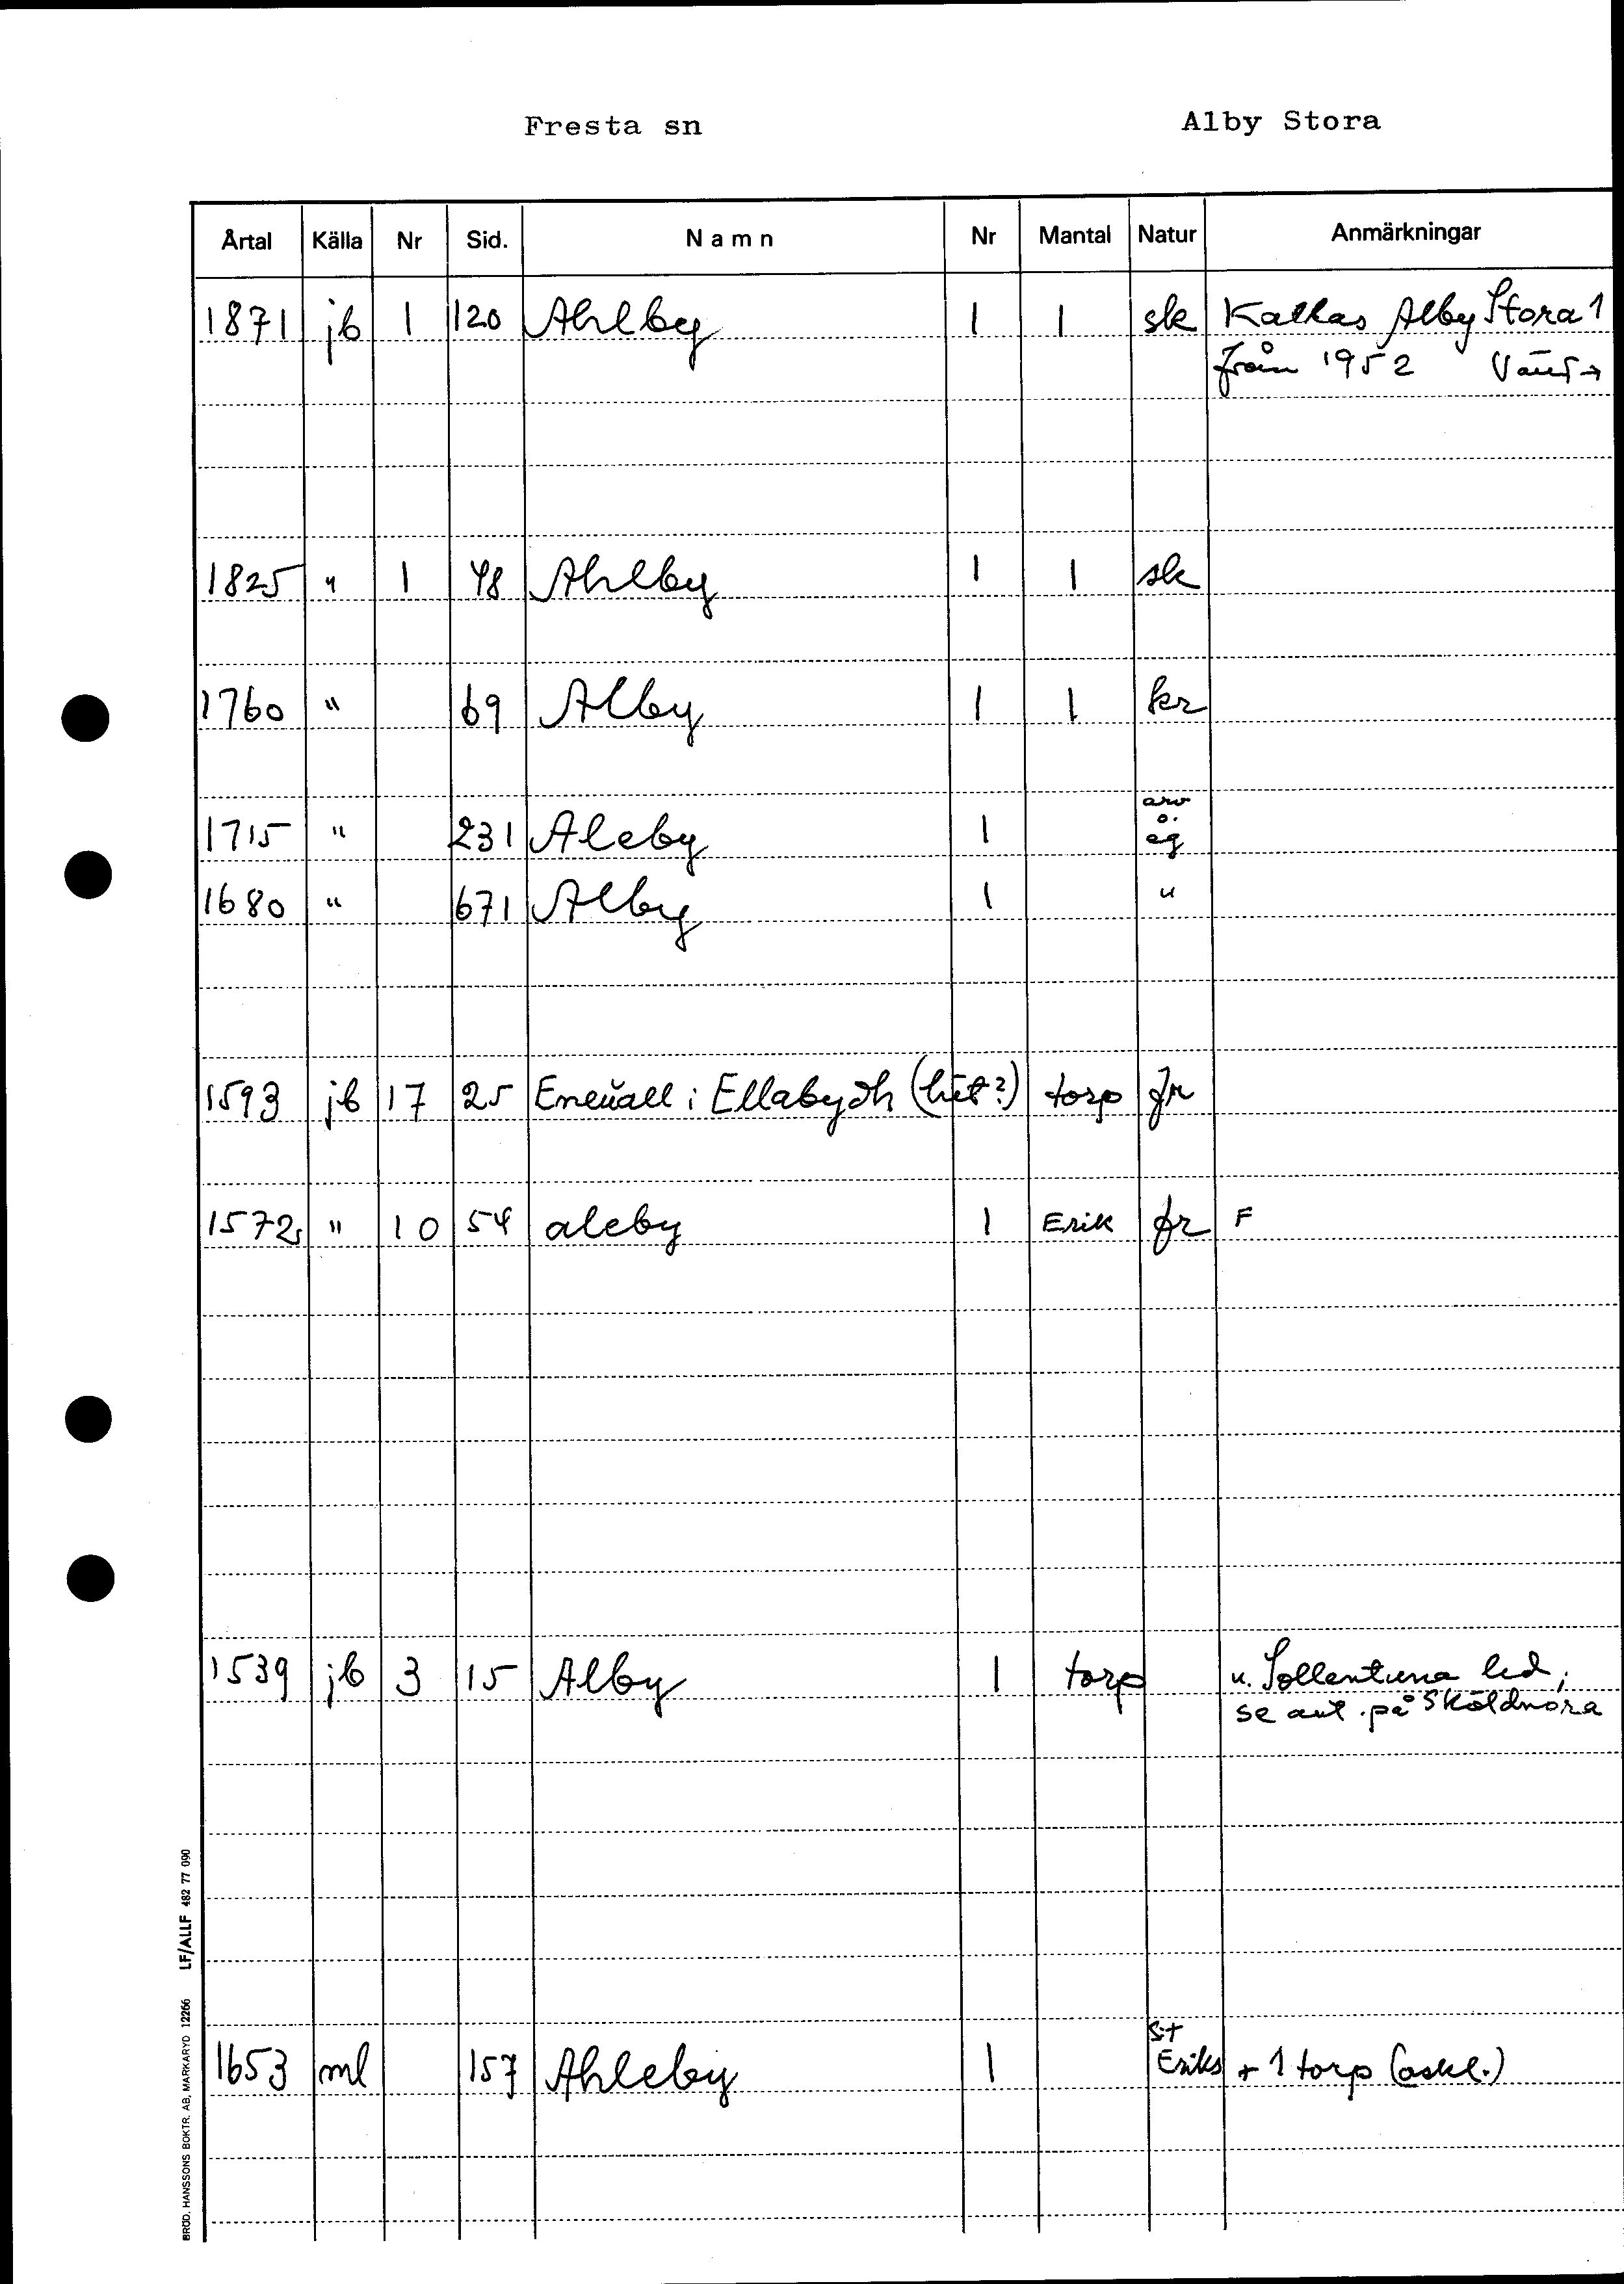 Fresta sn Alby Stora
Årtal Källa Nr Sid. Namn Nr Mantal Natur Anmärkningar
1871 jb 1 120 Ahlby 1 1 sk Kallas Alby Stora 1
från 1952 Vänd→
1825 " 1 48 Ahlby 1 1 sk
1760 " 69 Alby 1 1 kr
arv
o.
1715 " 231 Aleby 1 eg
1680 " 671 Alby 1 "
1593 jb 17 25 i Ellabydh torp fr
1572 " 10 54 aleby 1 Erik fr F
1539 jb 3 15 Alby 1 torp u. Sollentuna led;
se ant. på Sköldnora
S:t
1653 ml 157 Ahleby 1 Eriks + 1 torp (oskl.)
BRÖD. HANSSONS BOKTR. AB, MARKARYD 12266 LF/ALLF 482 77 090